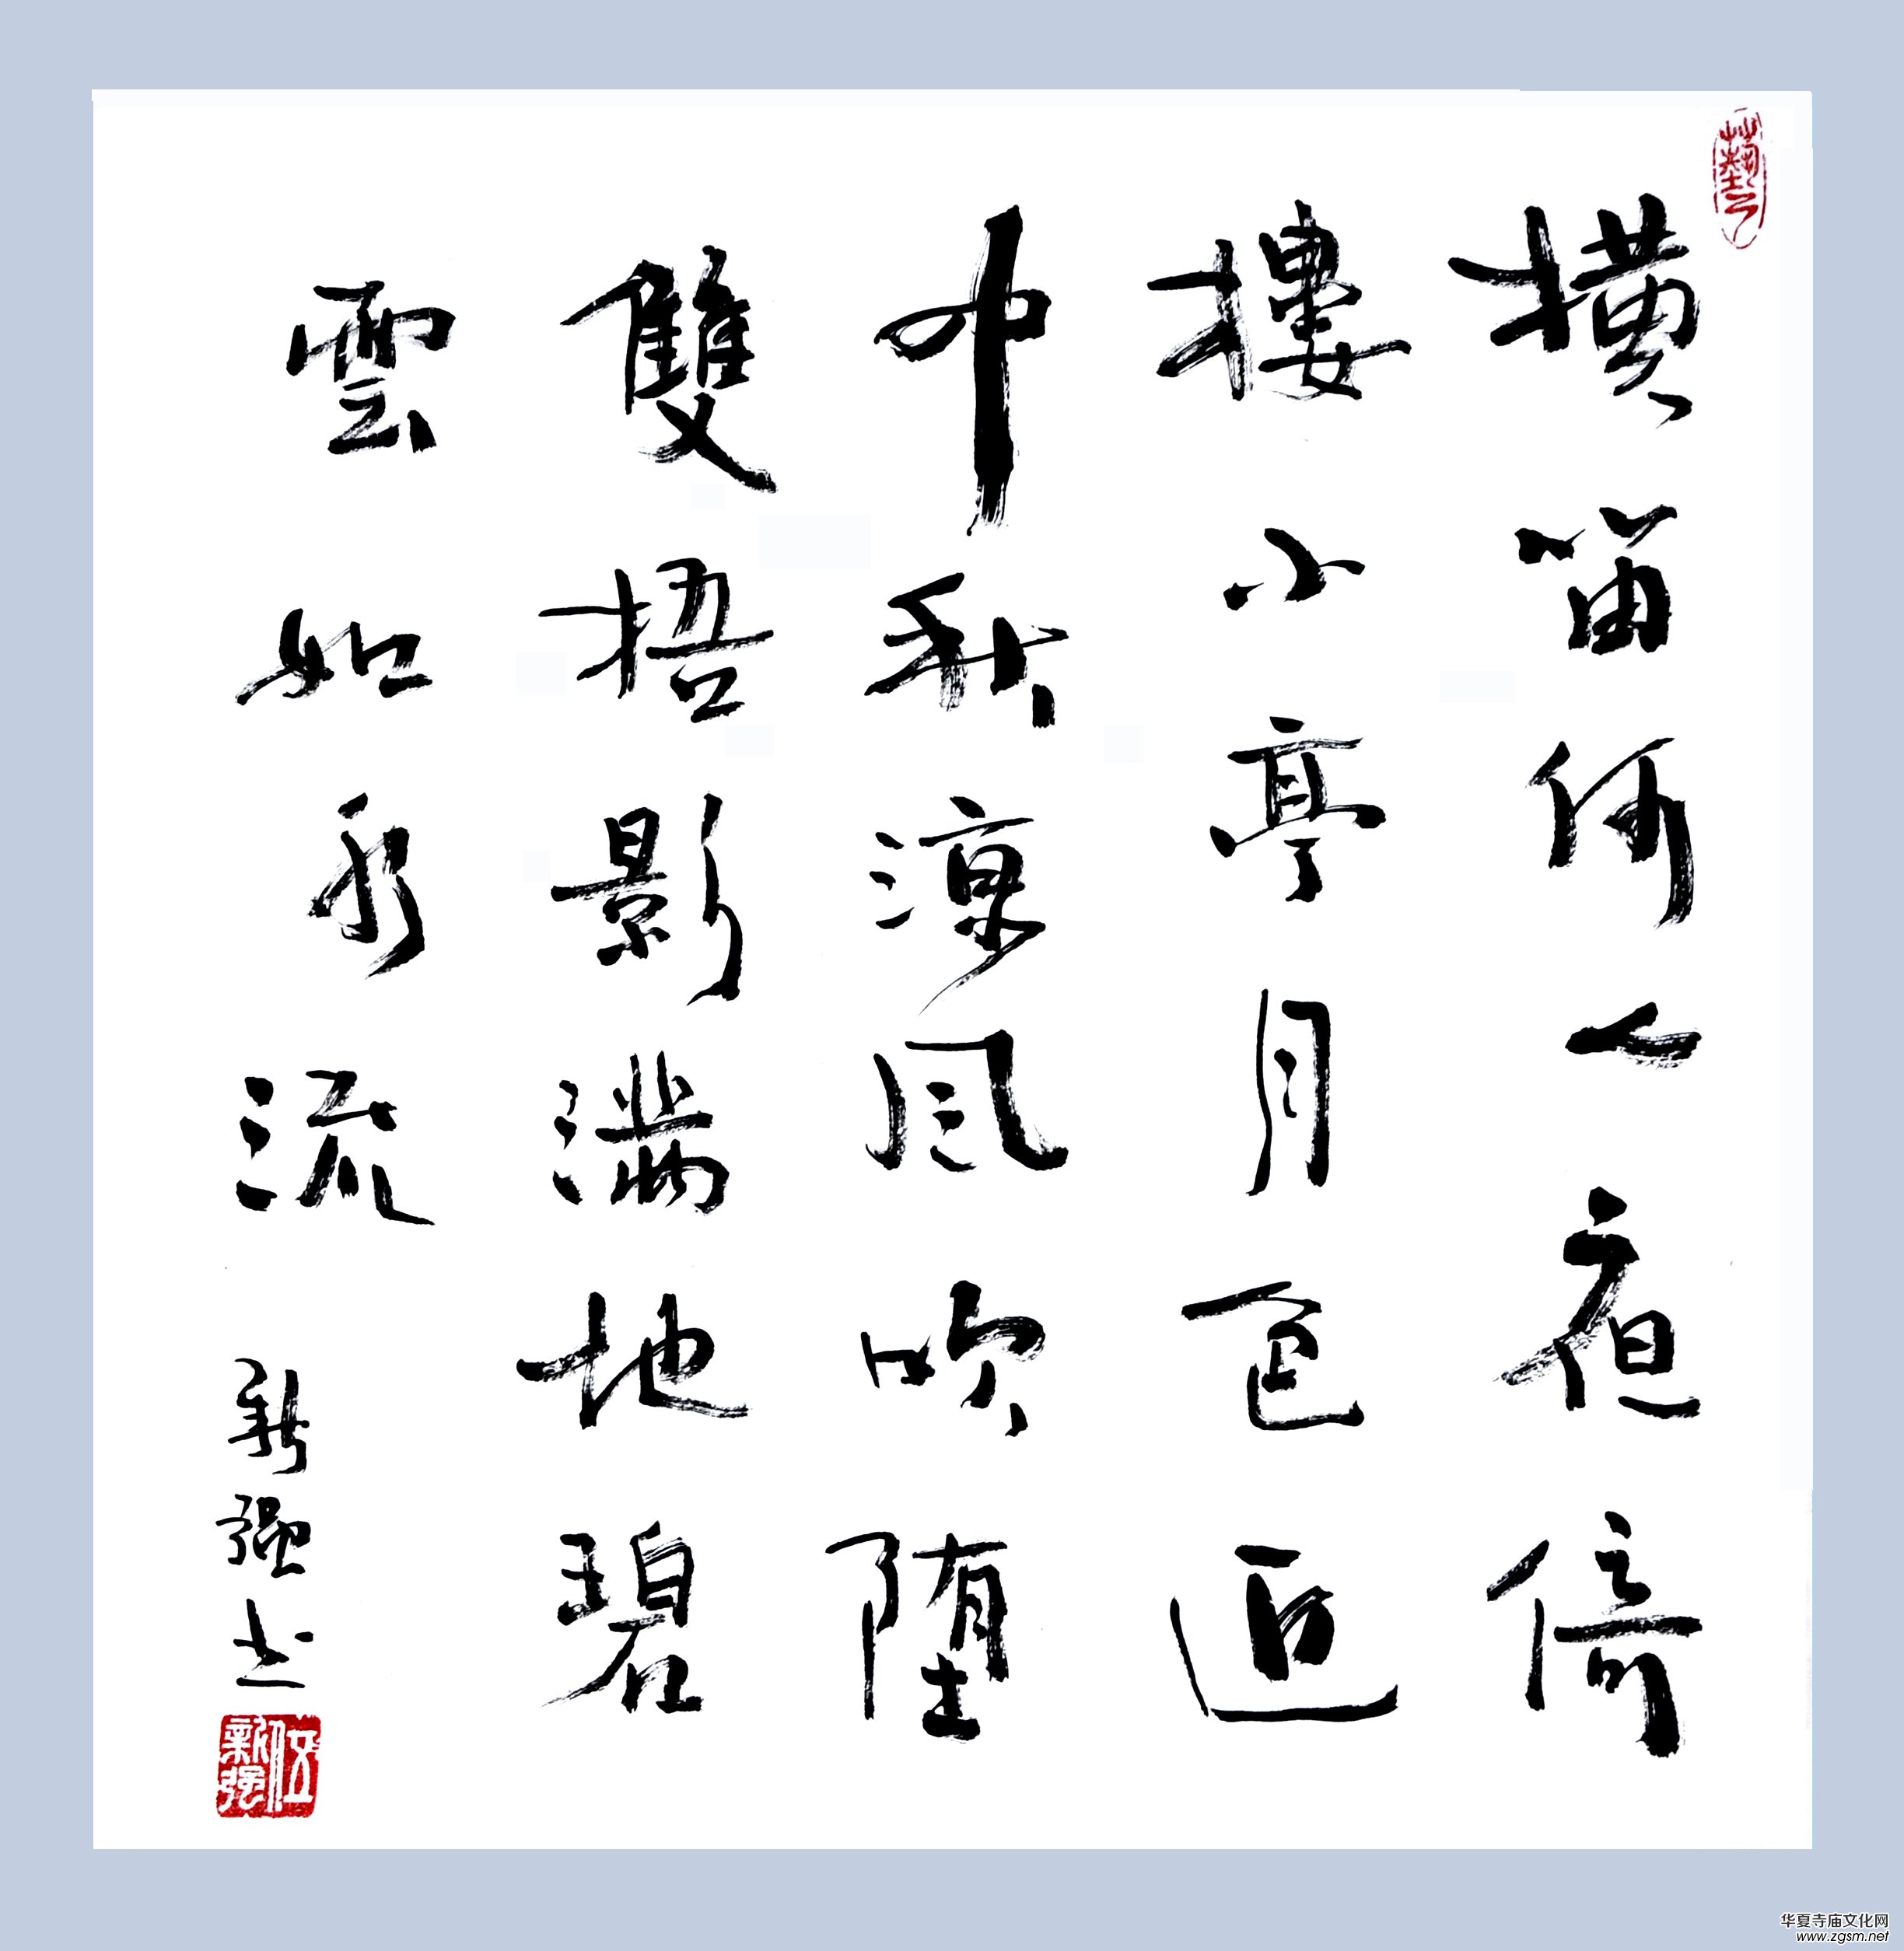 横笛何人夜倚
樓小亭月色近
中秋凉風吹堕
雙梧影滿地碧
雲如水流
新强书
伍新强
华夏寺庙文化网
www.zgsm.net